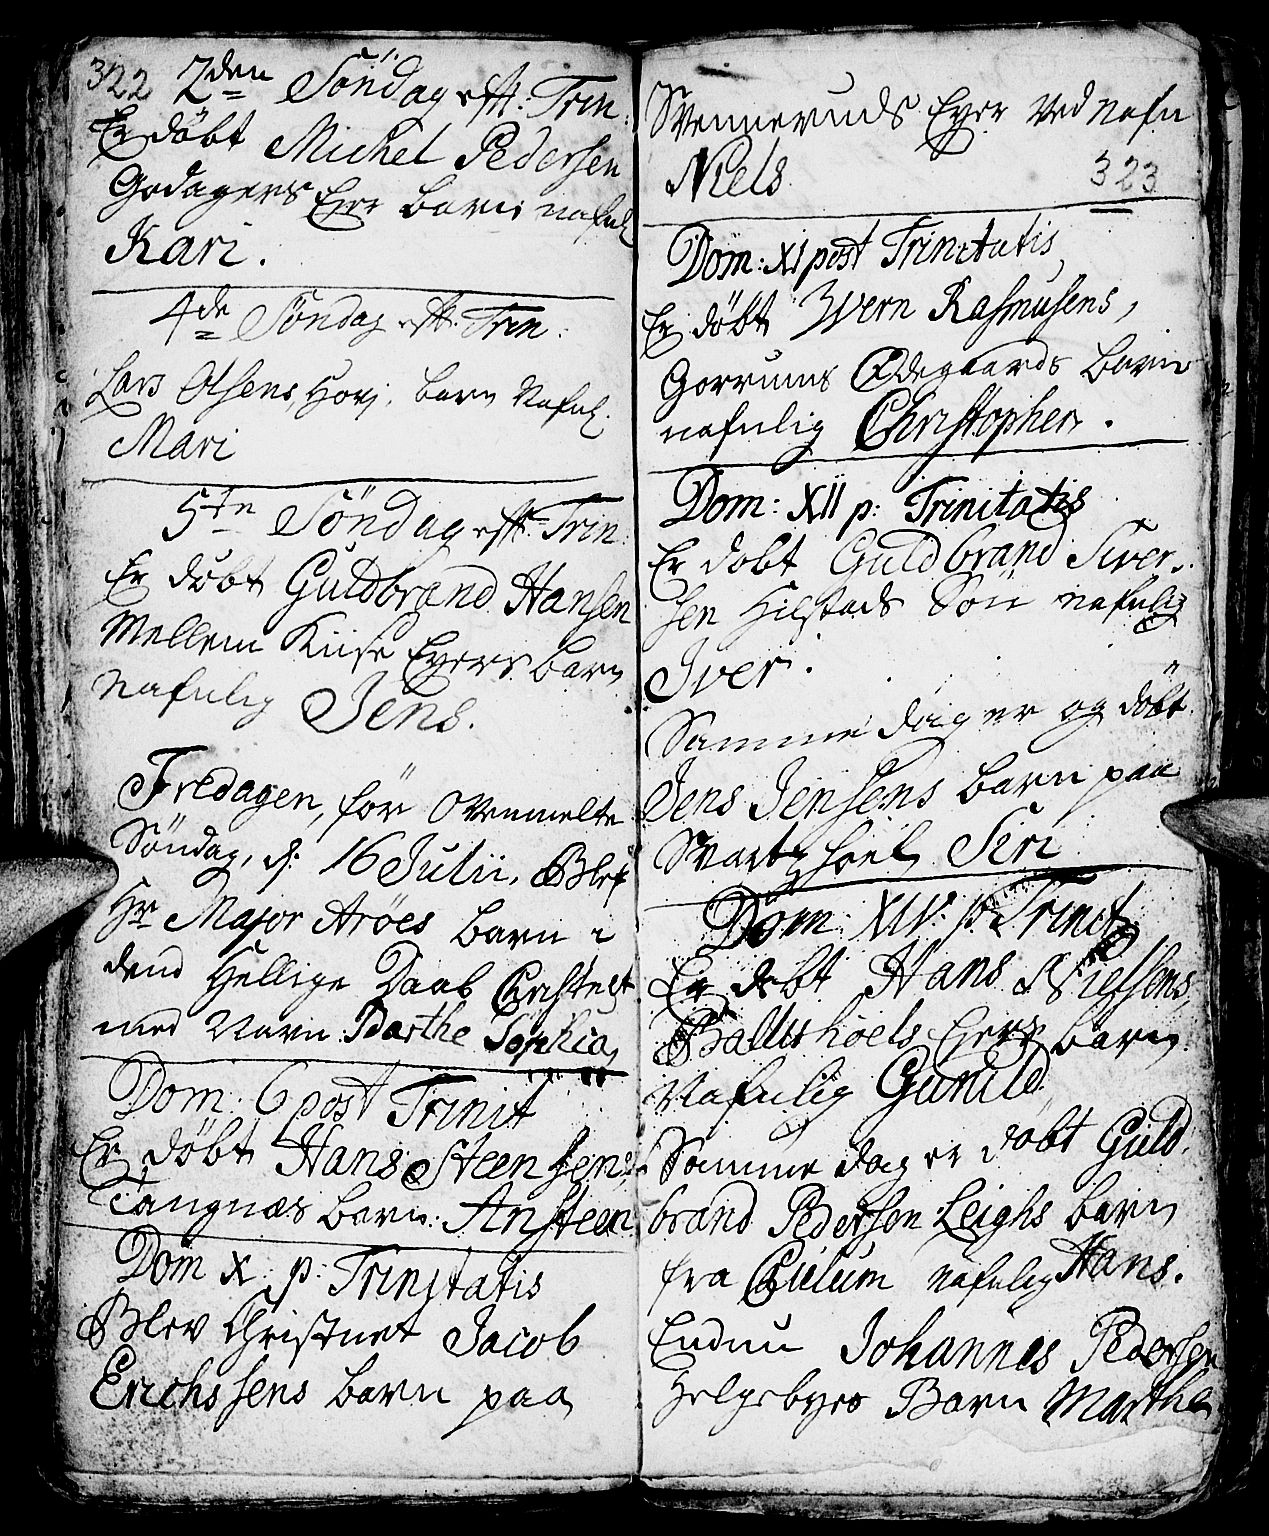 322 2den Söndag eft: Trin:
Er döbt Michel Pedersen
Godagers Eyer barn nafnl.
Kari.
4de Söndag eft: Trin:
Lars Olsens, Hov, barn Nafnl.
Mari
5te Söndag eft: Trin:
Er döbt Guldbrand Hansen
Mellem Kiise Eyers barn
Nafnlig Jens.
Fredagen, för Ovenmelte
Söndag, d: 16 Julii, Blef
Hr Major Aröes barn i
dend Hellige Daab Christnet
med Navn Barthe Sophia,
Dom: 6 post Trinit
Er döbt Hans Steensens
Tangnæs barn: Ansteen
Dom X p: Trinitatis
Blev Christnet Jacob
Erichssens barn paa
Svenneruds Eyer ved Nafn
Niels.
323
Dom: XI post Trinitatis
Er döbt Iwern Rasmusens,
Gorrums Ødegaards barn
nafnlig Christopher.
Dom: XII p: Trinitatis
Er dobt Guldbrand Siver-
sen Hilstads Sön nafnlig
Iver.
Samme dag er og döbt
Jens Jensens barn paa
Svartzhoel Siri
Dom: XIV: p: Trinit
Er döbt Hans Nielsens,
Ballishoels Eyers barn
Nafnlig Gunild
Samme dag er döbt Guld-
brand Pedersen Leighs barn
fra nafnlig Hans.
Endnu Johannes Pedersen
Helgebyes Barn Marthe